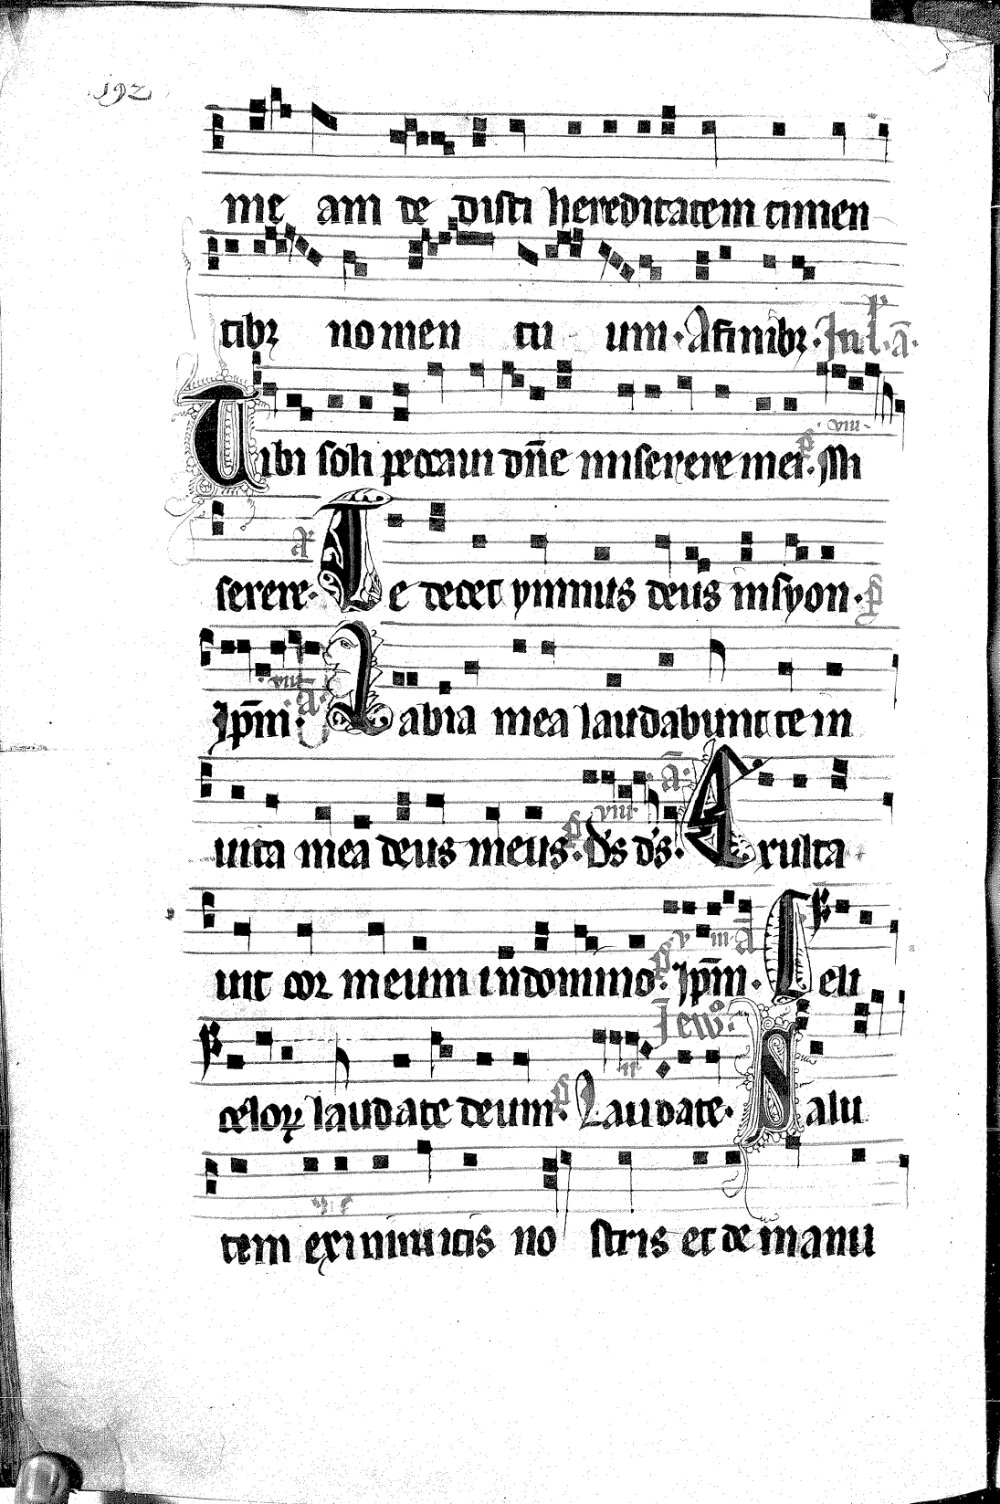 192
me am de disti hereditatem timen
tibꝫ nomen tu um. A finibꝫ. In l. a̅.
Tibi soli peccaui dn̅e miserere mei. p̅s viii Mi
serere. a̅. Te decet ymnus deus in syon. p̅s
Ip̅m. viii a̅. Labia mea laudabunt te in
uita mea deus meus. p̅s viii D's d's. a̅. Exulta
uit cor meum in domino. p̅s Ip̅m. viii a̅ De celi
celoꝝ laudate deum. p̅s Laudate. Salu
tem ex inimicis no stris et de manu